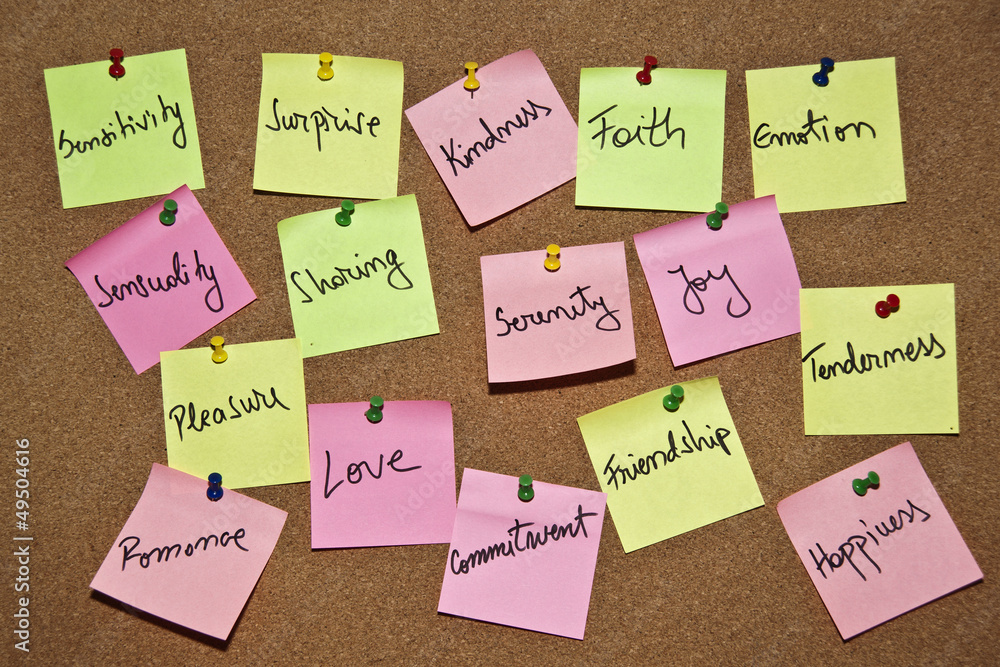 Sensitivity
Surprise
Kindness
Faith
Emotion
Sensuality
Sharing
Serenity
Joy
Tenderness
Pleasure
Love
Friendship
Romance
Commitment
Happiness
Adobe Stock | #49504616
Adobe Stock